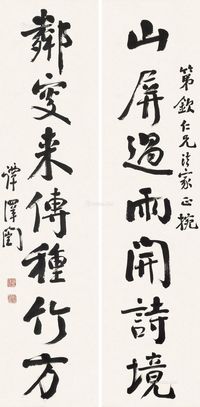 山屏過雨開詩境
第欽仁兄法家正挽
鄰叟来傳種竹方
譚澤闓